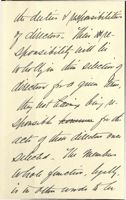 the duties & responsibilities
of directors. This re-
sponsibility will lie
wholly in the selection of
directors for a given time,
they not having being re-
sponsible for the
acts of these directors once
selected. The members
whole function, legally,
is in other words to be